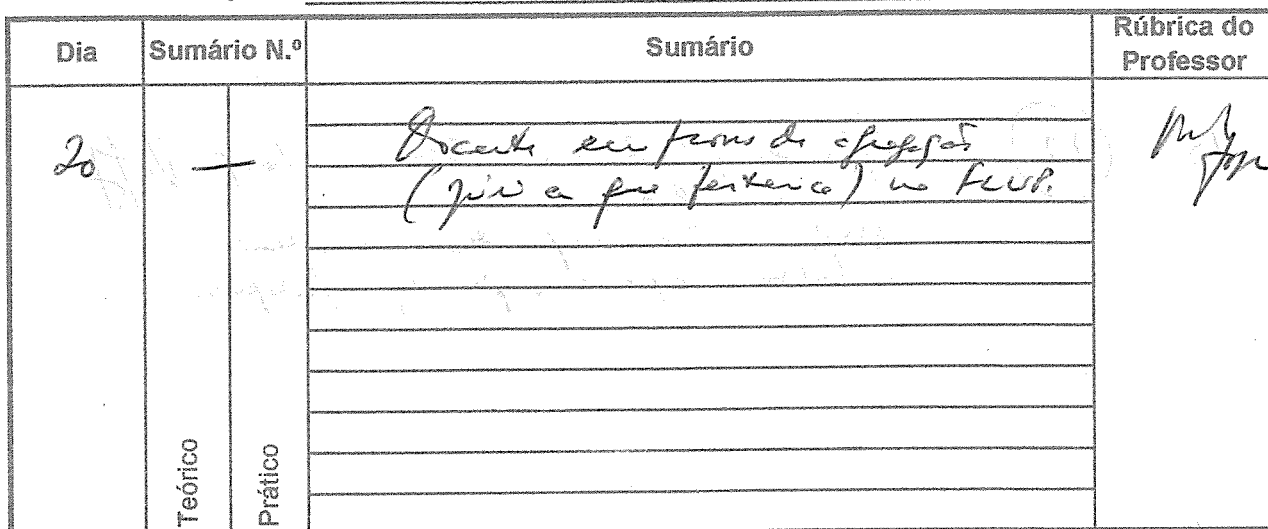 Dia
Sumário N.º
Sumário
Rúbrica do
Professor
20
—
Docente em provas de agregação
(júri a que pertence) na FLUP.
Teórico
Prático